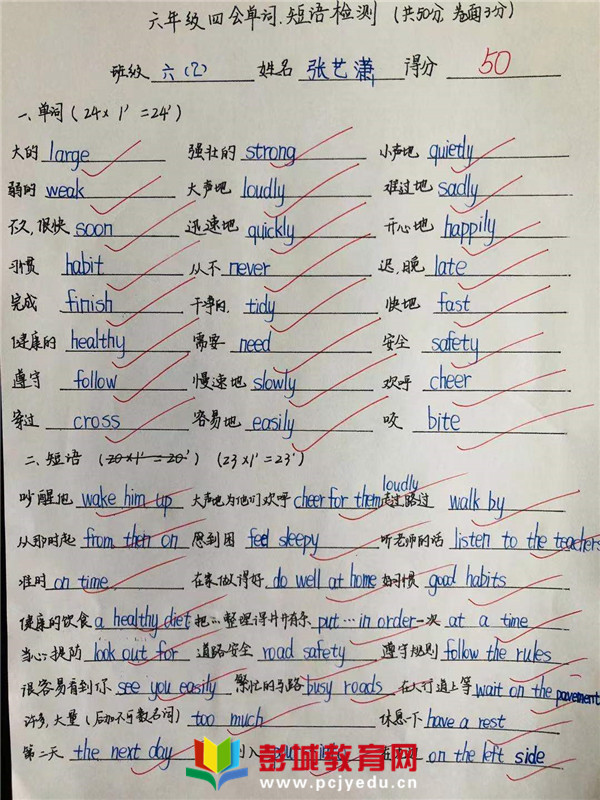 六年级四会单词.短语检测 (共50分,卷面3分)
班级 六(2) 姓名 张艺潇 得分 50
一、单词(24×1'=24')
大的 large 强壮的 strong 小声地 quietly
弱的 weak 大声地 loudly 难过地 sadly
不久,很快 soon 迅速地 quickly 开心地 happily
习惯 habit 从不 never 迟,晚 late
完成 finish 干净的, tidy 快地 fast
健康的 healthy 需要 need 安全 safety
遵守 follow 慢速地 slowly 欢呼 cheer
穿过 cross 容易地 easily 咬 bite
二、短语 (20×1'=20') (23×1'=23')
吵醒他 wake him up 大声地为他们欢呼 cheer for them loudly 走过,路过 walk by
从那时起 from then on 感到困 feel sleepy 听老师的话 listen to the teachers
准时 on time 在家做得好, do well at home 好习惯 good habits
健康的饮食 a healthy diet 把…整理得井井有条 put…in order 一次 at a time
当心,提防 look out for 道路安全 road safety 遵守规则 follow the rules
很容易看到你 see you easily 繁忙的马路 busy roads 在人行道上等 wait on the pavement
许多,大量(后加不可数名词) too much 休息一下 have a rest
第二天 the next day on the left side
彭城教育网
www.pcjyedu.cn